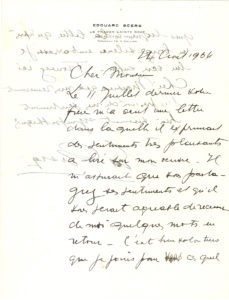 EDOUARD
24 Avril 1964
Cher Monsieur
Le 11 Juillet dernier votre
m'a écrit une lettre
dans laquelle il exprimait
des sentiments très plaisants
à lire sur mon œuvre. Il
m'assurait que vous
ces sentiments et qu'il
vous serait agréable de recevoir
de moi quelques mots en
retour - C'est bien volontiers
que je pour ce quel